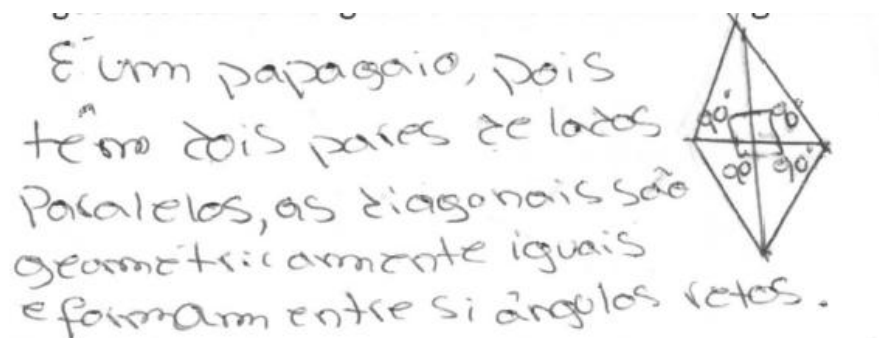 É um papagaio, pois
têm dois pares de lados
Paralelos, as diagonais são
geometricamente iguais
e formam entre si ângulos retos.
90° 90°
90° 90°